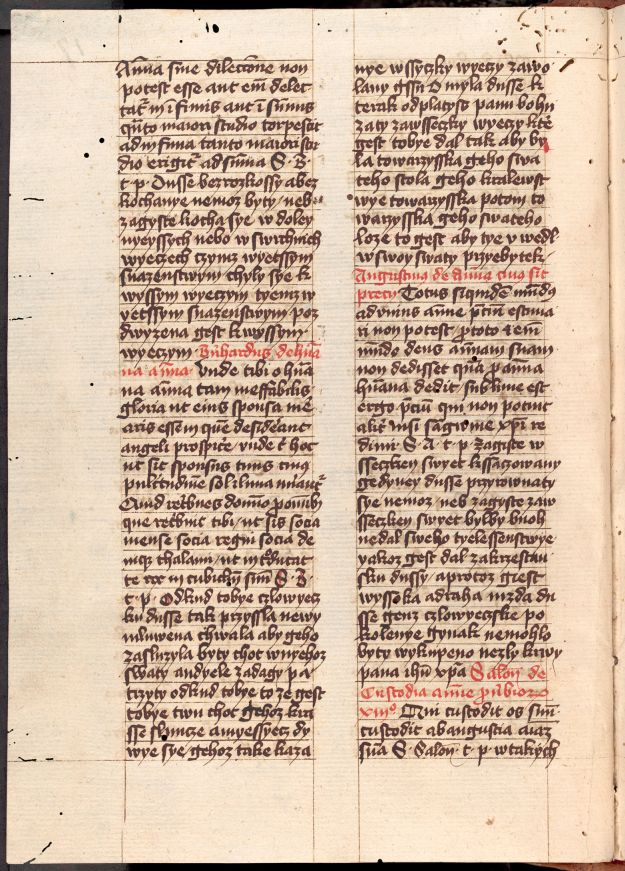 Aīa sine dileccōne non
potest esse aut em̄ delec
tat᷑ in ifimis aut ī sūmis
qn̄to maiori studio torpescit
ad infima tanto maiori stu
dio erigit᷑ ad sūma S B
t p Dusse bez rozkossy a bez
kochanye nemoz byty neb
zagyste kocha sye w doley
nyeyssych nebo w swrchnich
wyeczech czymz wyetssym
snazenstwym chyly sye k
wyssym wyeczym tyemz w
yetssym snazenstwym poz
dwyzena gest k wyssym
wyeczym Bn̄hardus de hūa
na aīa Vnde tibi o hūa
na aīa tam ineffabilis
gloria ut eius sponsa me᷑
aris esse in quē desideāt
angeli prospic̄e vnde t̄ hoc
ut sit sponsus tuus cuius
pulc̄tudinē sol et luna mirant᷑
Quid ret̄bues domīo pro om̄ib
que ret̄buit tibi ut sis socia
mense socia regni socia de
niq̄ thalami ut īt̄ducat
te rex in cubiclm̄ suū S B
t p Odkud tobye czlowyecz
ku dusse tak przyssla newy
mluwena chwala aby geho
zasluzyla byty chot w nyehoz
swaty andyele zadagy pa
trzyty odkud tobye to ze gest
tobye twu chot gehoz kra
sse sluncze a myessyecz dy
wye sye gehoz take kaza
nye wssyczky wyeczy zawo
lany gsu O myla dusse k
terak odplatys panu bohu
za ty za wsseczky wyeczy kte᷑
gest tobye dal tak aby by
la towarzysska geho swa
teho stola geho kralewst
wye towarzysska potom to
warzysska geho swateho
loze to gest aby tye v wedl
w swoy swaty przyebytek
Augustinus de aīa cuius sit
precii Totus siquidē mūdus
ad unius aīe p̄cīū estima
ri non potest ꝓ toto et em̄
mūdo deus aīam suam
non dedisset quā p aīa
hūana dedit sublime est
ergo p̄cīū qui non potuit
alit᷑ nisi sagwine xp̄i re
dimi S A t p Zagiste w
sseczken swyet k ssaczowany
gedyney dusse przyrownaty
sye nemoz neb zagyste zaw
sseczken swyet bylby buoh
nedal sweho tyelessenstwye
yakoz gest dal za krzestan
sku dussy a protoz giest
wyssoka a draha mzda du
sse genz czlowyeczske po
kolenye gynak nemohlo
byty wykupeno nezly krwy
pana ihū xp̄a Salon̄ de
Custodia aīe pūbiorꝫ
xiiiº Qui custodit os suū
custodit ab angustia aīaz
suā S Salon t p w takych